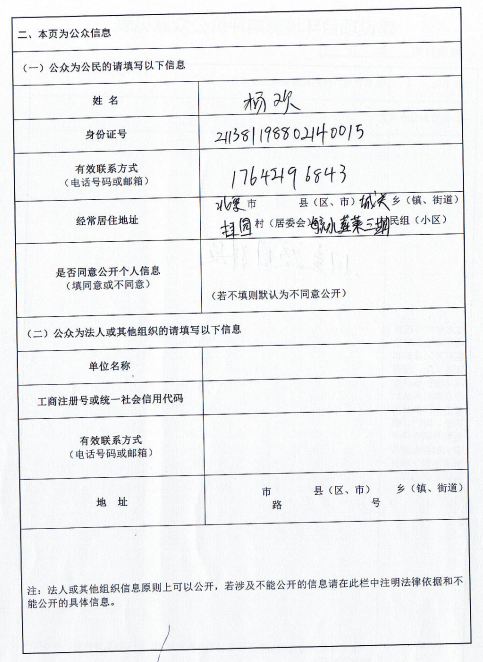 二、本页为公众信息
（一）公众为公民的请填写以下信息
姓 名 杨欢
身份证号 211381198802140015
有效联系方式
（电话号码或邮箱） 17642196843
经常居住地址 北票市 县（区、市）城关乡（镇、街道）
桂园村（居委会） 第三期村民组（小区）
是否同意公开个人信息
（填同意或不同意）
（若不填则默认为不同意公开）
（二）公众为法人或其他组织的请填写以下信息
单位名称
工商注册号或统一社会信用代码
有效联系方式
（电话号码或邮箱）
地 址 市 县（区、市） 乡（镇、街道）
路 号
注：法人或其他组织信息原则上可以公开，若涉及不能公开的信息请在此栏中注明法律依据和不
能公开的具体信息。